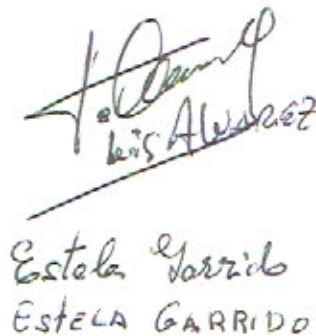 Luis ALVAREZ
Estela Garrido
ESTELA GARRIDO